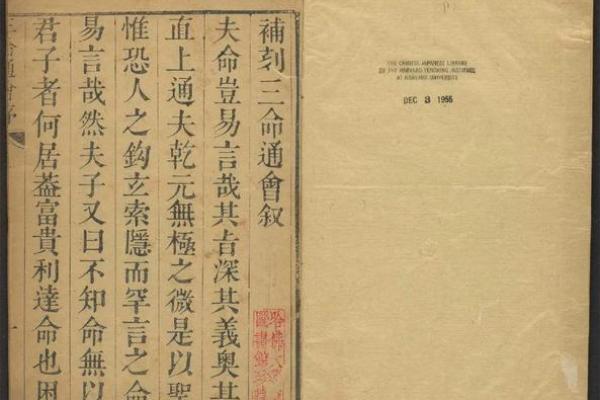 THE CHINESE-JAPANESE LIBRARY
OF THE HARVARD-YENCHING INSTITUTE
AT HARVARD UNIVERSITY
DEC 3 1955
補刻三命通會叙
夫命豈易言哉其㫖深其義奧其
直上通夫乾元無極之微是以聖
惟恐人之鈎玄索隱而罕言之命
易言哉然夫子又曰不知命無以
君子者何居葢富貴利達命也困
三命通會序 一
哈佛大
圖書館珍